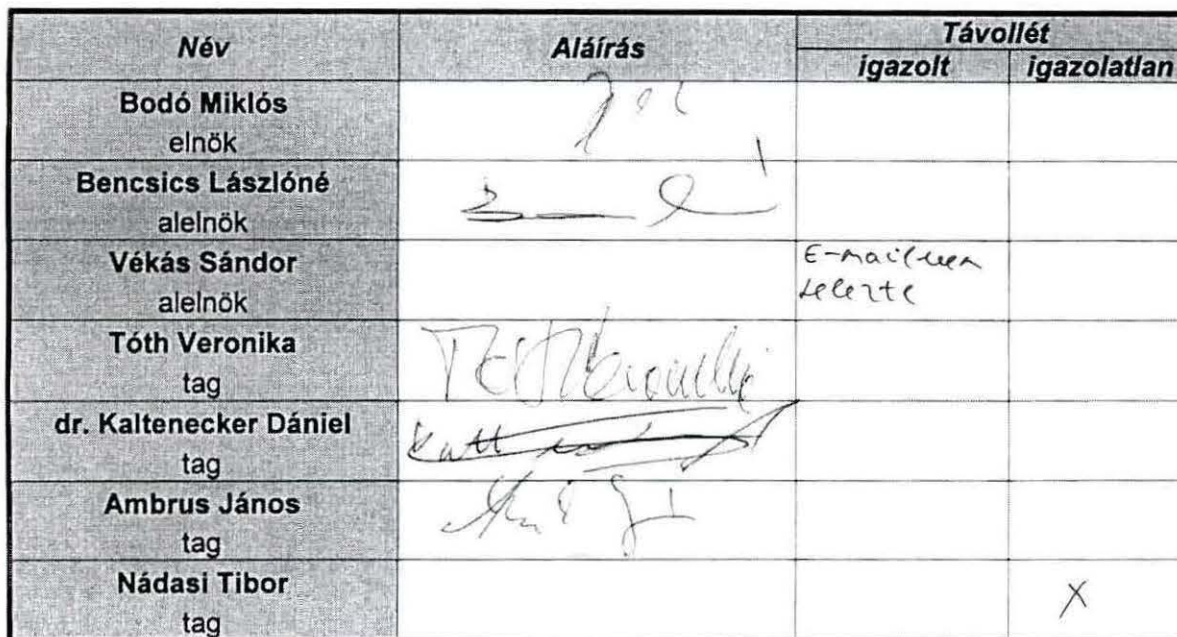 Név Aláírás Távollét
igazolt igazolatlan
Bodó Miklós
elnök
Bencsics Lászlóné
alelnök
Vékás Sándor
alelnök
E-mailben
jelezte
Tóth Veronika
tag
Tóth Veronika
dr. Kaltenecker Dániel
tag
Ambrus János
tag
Nádasi Tibor
tag
X